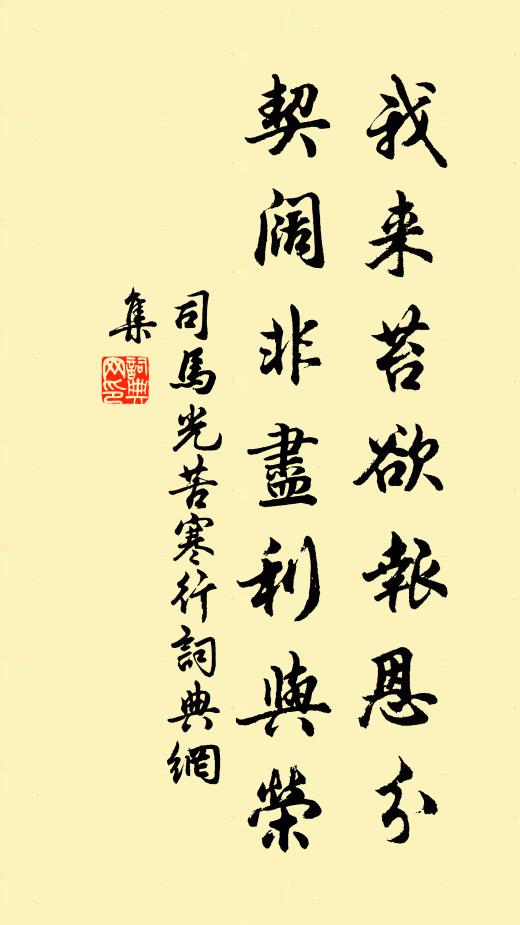 我来荅欲報恩分
契闊非盡利與榮
司馬光苦寒行詞典網
集
詞典网印